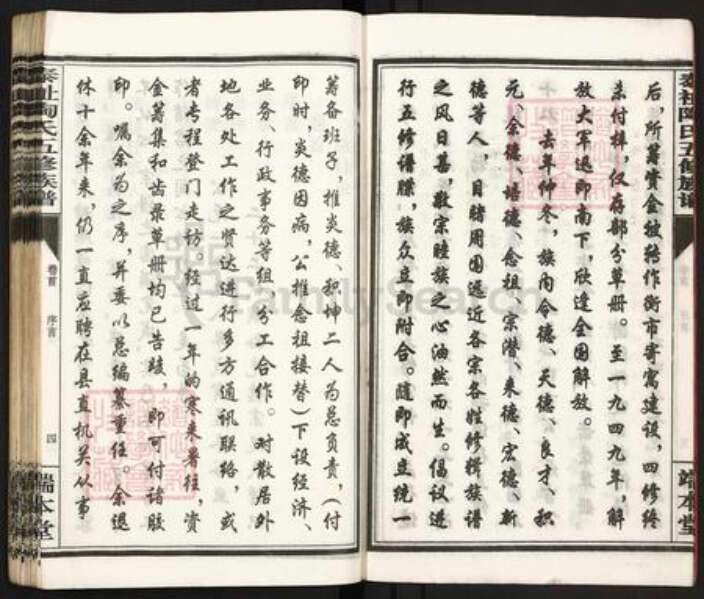 后，所筹资金被转作街市寄寓建设，四修终
未付梓，仅存部分草册。至一九四九年，解
放大军迅即南下，欣逢全国解放。
去年仲冬，族内令德、天德、良才、积
元、余德、培德、念祖、宗潜、来德、宏德、新
德等人，目睹周围远近各宗各姓修辑族谱
之风日甚，敬宗睦族之心油然而生。倡议进
行五修谱牒，族众立即附合。随即成立统一
筹备班子，推炎德、积坤二人为总负责，（付
印时，炎德因病，公推念祖接替）下设经济、
业务、行政事务等组，分工合作。对散居外
地各处工作之贤达进行多方通讯联络，或
者专程登门走访。经过一年的寒来暑往，资
金筹集和齿录草册均已告竣，即可付诸胶
印。嘱余为之序，并委以总编纂重任。余退
休十余年来，仍一直应聘在县直机关从事
陶氏五修族谱
卷首
序言
四
端本堂
FamilySearch